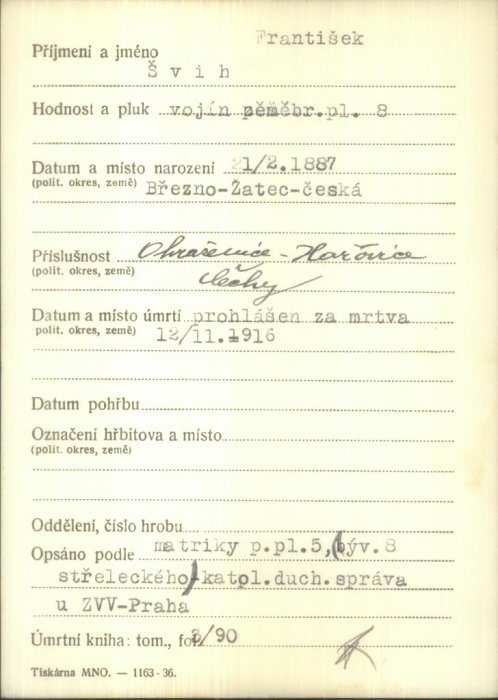 František
Příjmení a jméno
Švih
Hodnost a pluk vojín zěměbr.pl. 8
Datum a místo narození 21/2.1887
(polit. okres, země) Březno-Žatec-česká
Příslušnost Ohraženice - Hořovice
(polit. okres, země) Čechy
Datum a místo úmrtí prohlášen za mrtva
polit. okres, země) 12/11.1916
Datum pohřbu
Označení hřbitova a místo
(polit. okres, země)
Oddělení, číslo hrobu
Opsáno podle matriky p.pl.5,(býv.8
střeleckého)-katol.duch.správa
u ZVV-Praha
Úmrtní kniha: tom., fol. /90
Tiskárna MNO. — 1163-36.